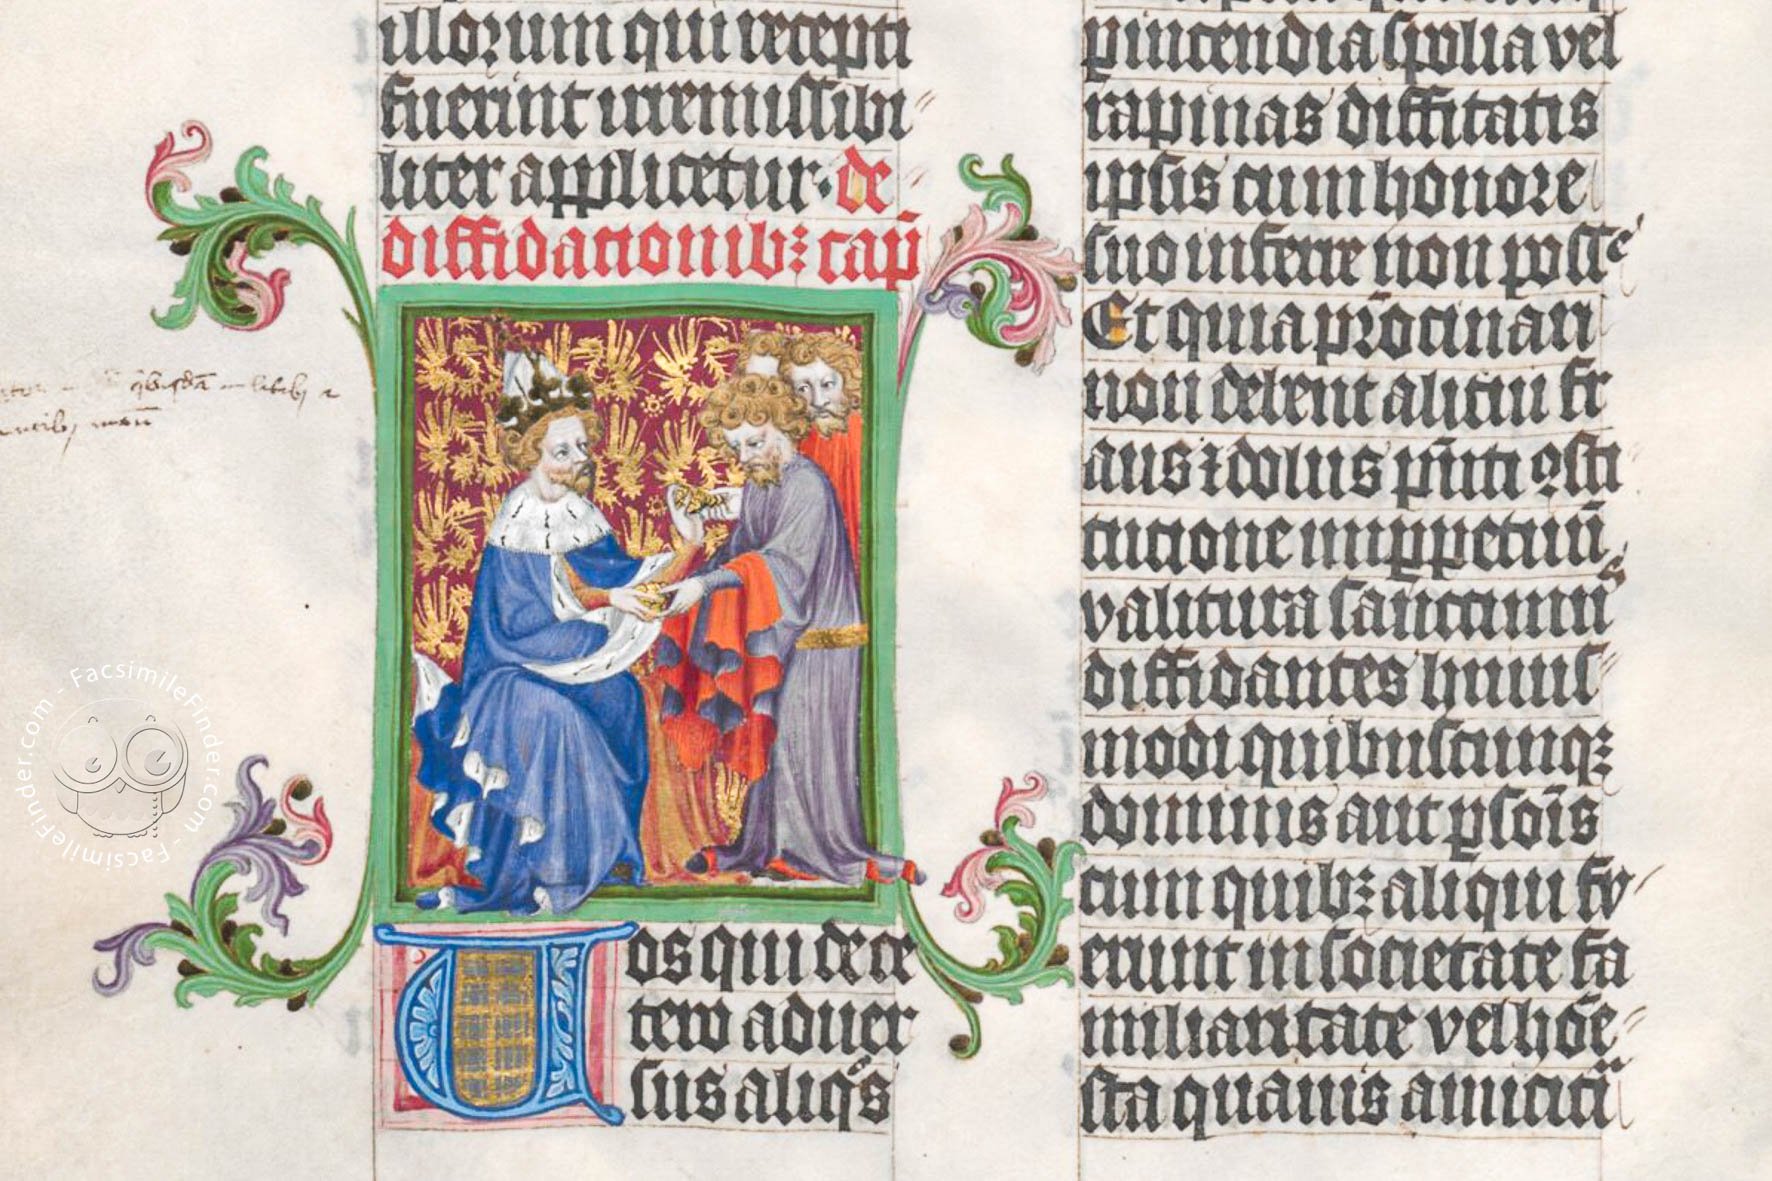 illorum qui recepti
fuerint irremissibi
liter applicetur. de
diffidationibꝫ cap̄
os qui dece
tero aduer
sus aliqͦs
pincendia spolia vel
rapinas diffitatis
ipsis cum honore
suo inferre non posse
Et quia p̄rocinari
non debent alicui fr
aus ⁊ dolus p̄nti ꝯsti
tucione imꝑpetuū
valitura sanctimus
diffidantes huius
modi quibuscunqꝫ
dominis aut ꝑsoīs
cum quibꝫ aliqui fu
erunt in societate fa
miliaritate vel hōe
sta quauis amiciti
FacsimileFinder.com - FacsimileFinder.com -